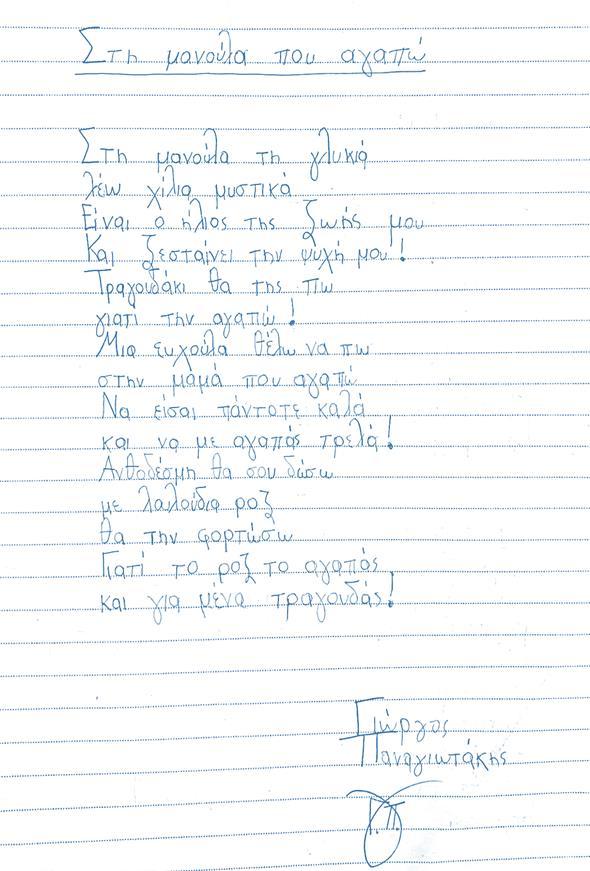 Στη μανούλα που αγαπώ
Στη μανούλα τη γλυκιά
λέω χίλια μυστικά
Είναι ο ήλιος της ζωής μου
Και ζεσταίνει την ψυχή μου!
Τραγουδάκι θα της πω
γιατί την αγαπώ!
Μια ευχούλα θέλω να πω
στην μαμά που αγαπώ
Να είσαι πάντοτε καλά
και να με αγαπάς τρελά!
Ανθοδέσμη θα σου δώσω
με λαλούδια ροζ
θα την φορτώσω
Γιατί το ροζ το αγαπάς
και για μένα τραγουδάς!
Γιώργος
Παναγιωτάκης
Γ.Π.